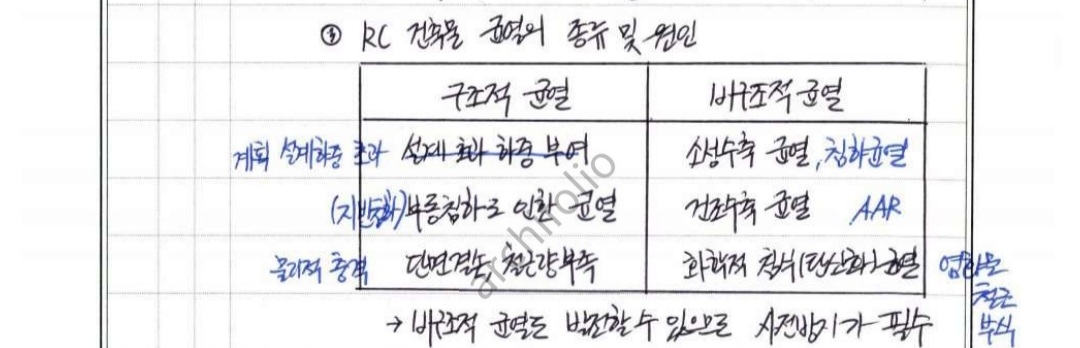 ③ RC 건축물 균열의 종류 및 원인
구조적 균열 비구조적 균열
계획 설계하중 초과 설계 초과 하중 부여 소성수축 균열, 침하균열
(지반침하) 부동침하로 인한 균열 건조수축 균열 AAR
물리적 충격 단면결손, 철근량부족 화학적 침식(탄산화) 균열 염화물
철근
부식
→ 비구조적 균열도 발전할 수 있으므로 사전방지가 필수
archfolio